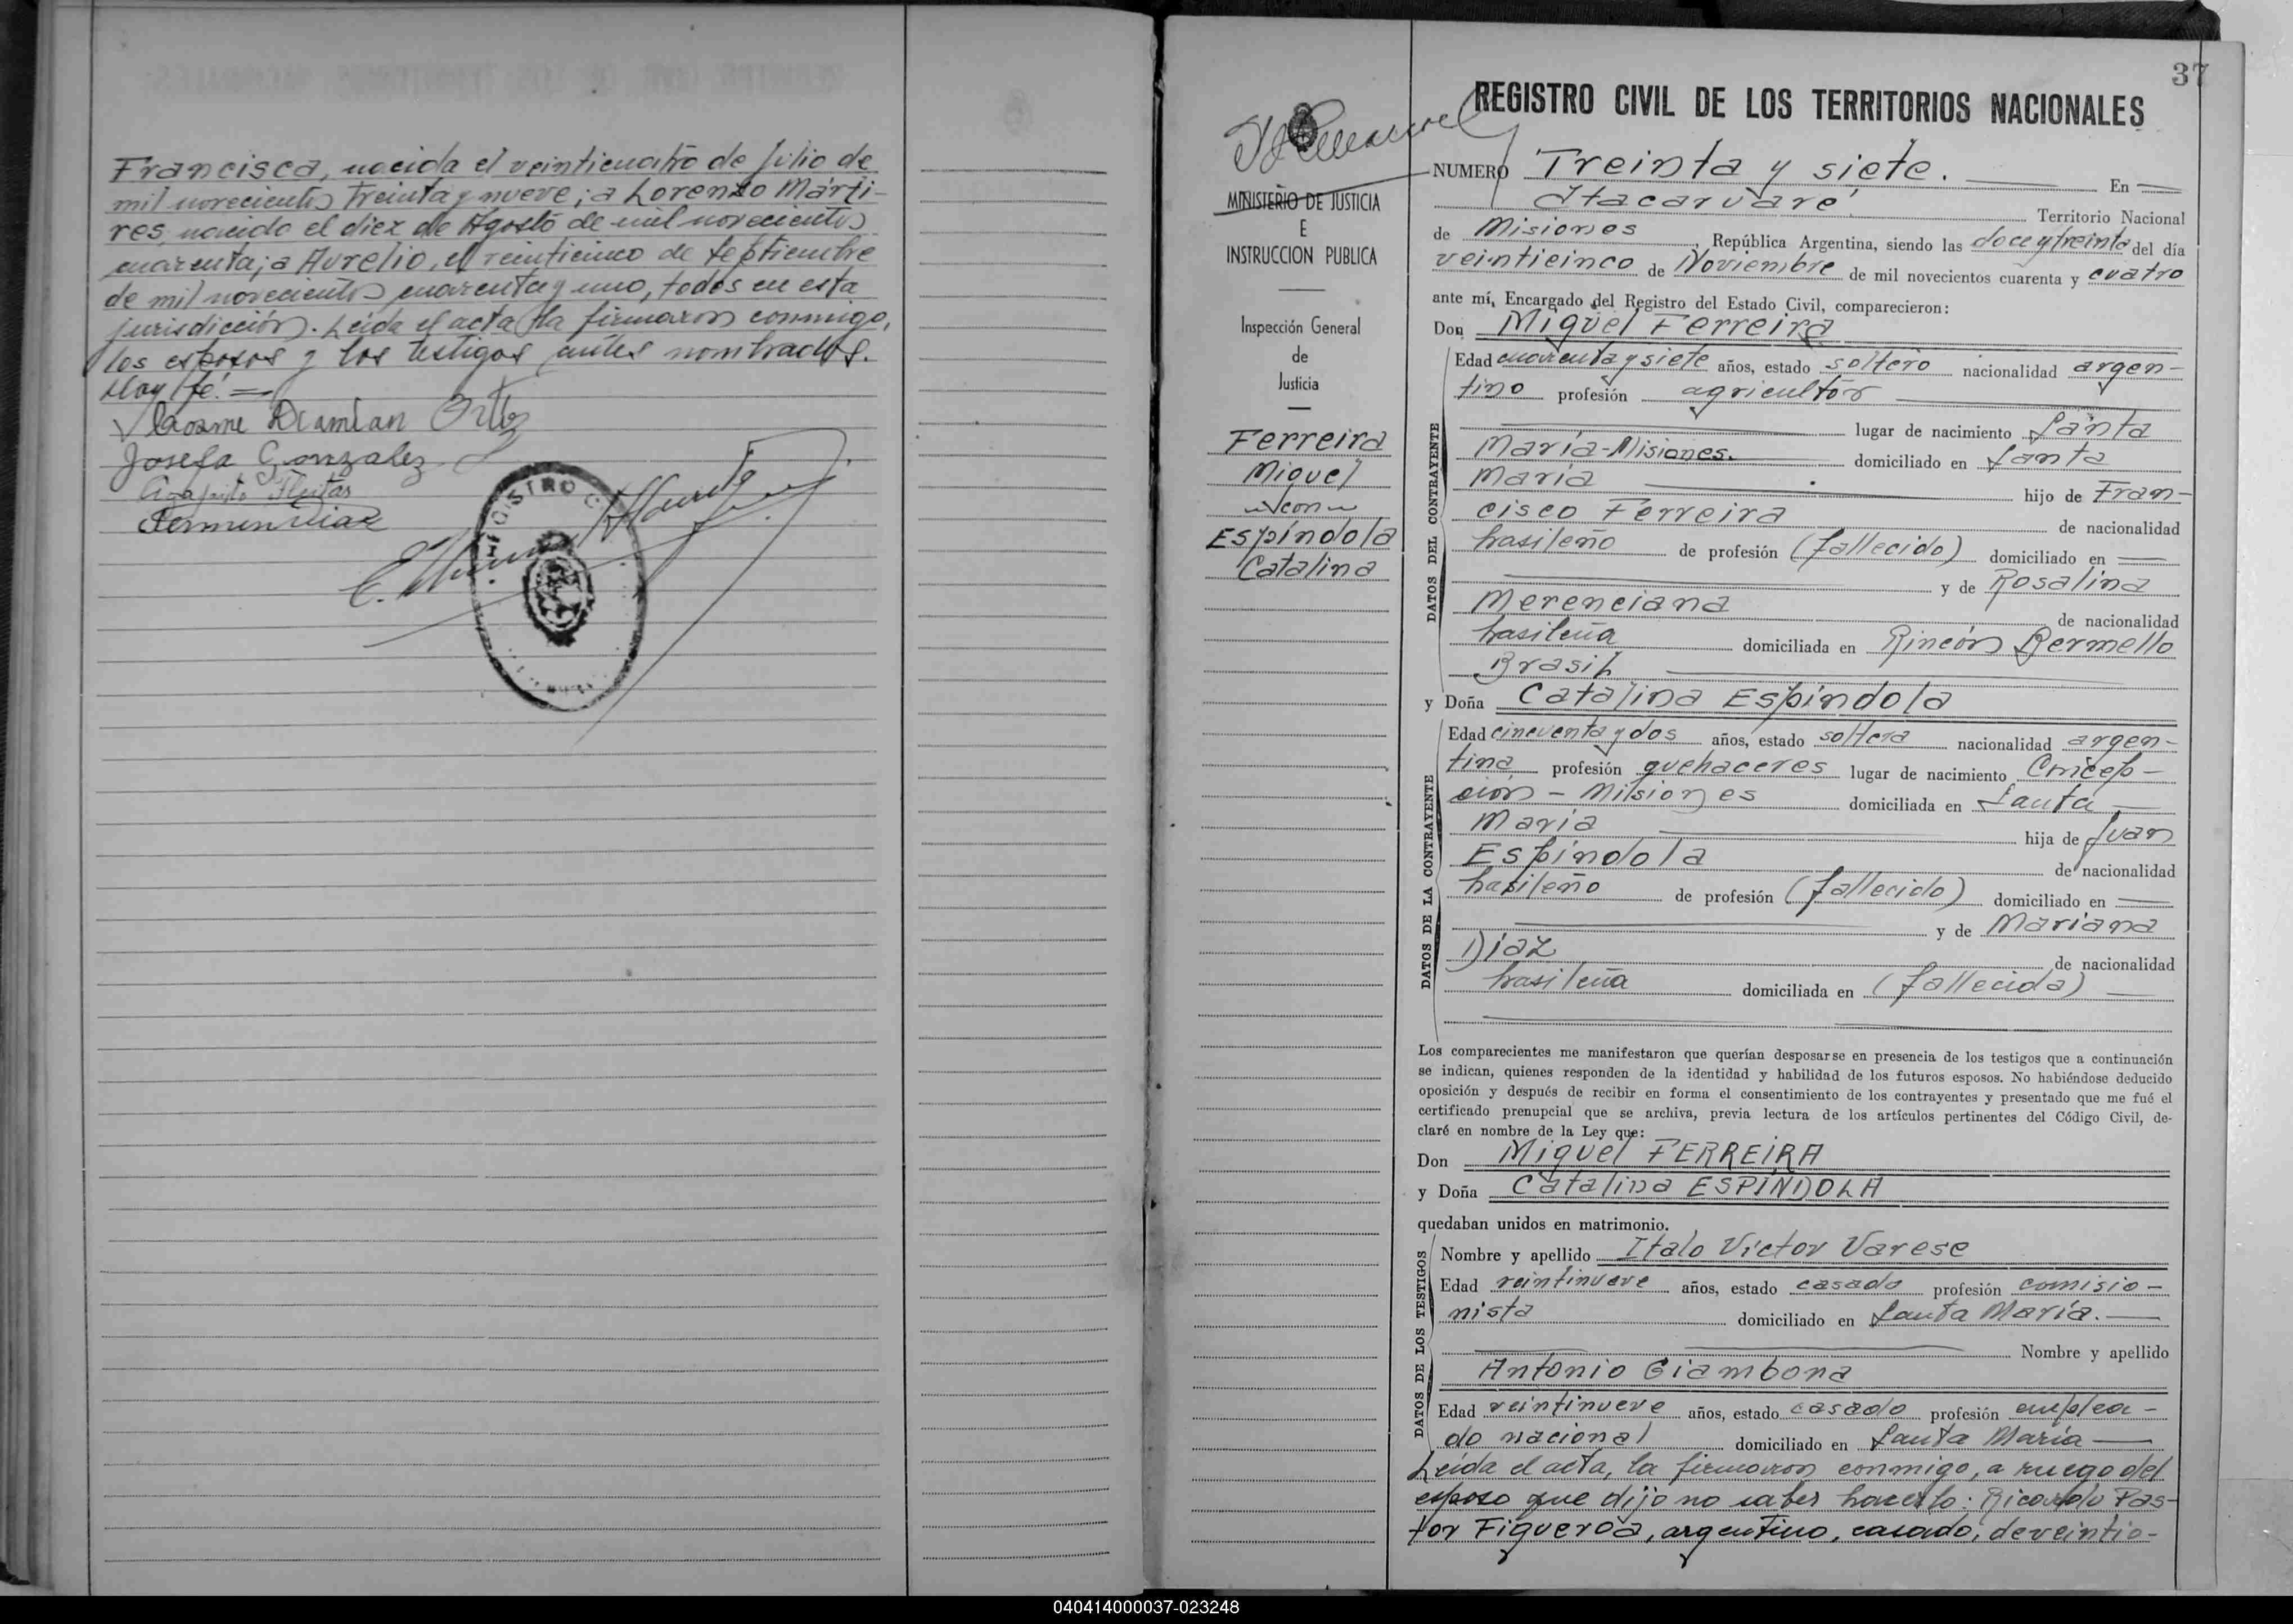 Francisca, nacida el veinticuatro de Julio de
mil novecientos treinta y nueve; a Lorenzo Marti-
res, nacido el diez de Agosto de mil novecientos
cuarenta; a Aurelio, el veinticinco de Septiembre
de mil novecientos cuarenta y uno, todos en esta
jurisdicción. Leída el acta, la firmaron conmigo,
los esposos y los testigos antes nombrados.
Doy fé.=
Cosme Damian Ortiz
Josefa Gonzalez
Agapito Fleitas
Fermin Diaz
REGISTRO C
37
REGISTRO CIVIL DE LOS TERRITORIOS NACIONALES
MINISTERIO DE JUSTICIA
E
INSTRUCCION PUBLICA
Inspección General
de
Justicia
Ferreira
Miguel
con
Espíndola
Catalina
NUMERO Treinta y siete. En
Itacaruaré Territorio Nacional
de Misiones, República Argentina, siendo las doce y treinta del día
veinticinco de Noviembre de mil novecientos cuarenta y cuatro
ante mí, Encargado del Registro del Estado Civil, comparecieron:
Don Miguel Ferreira
DATOS DEL CONTRAYENTE
Edad cuarenta y siete años, estado soltero nacionalidad argen-
tino profesión agricultor
lugar de nacimiento Santa
María-Misiones. domiciliado en Santa
María hijo de Fran-
cisco Ferreira de nacionalidad
brasileño de profesión (fallecido) domiciliado en
y de Rosalina
Merenciana de nacionalidad
brasileña domiciliada en Rincón Bermello
Brasil
y Doña Catalina Espíndola
DATOS DE LA CONTRAYENTE
Edad cincuenta y dos años, estado soltera nacionalidad argen-
tina profesión quehaceres lugar de nacimiento Concep-
ción - Misiones domiciliada en Santa
María hija de Juan
Espíndola de nacionalidad
brasileño de profesión (fallecido) domiciliado en
y de Mariana
Díaz de nacionalidad
brasileña domiciliada en (fallecida)
Los comparecientes me manifestaron que querían desposarse en presencia de los testigos que a continuación
se indican, quienes responden de la identidad y habilidad de los futuros esposos. No habiéndose deducido
oposición y después de recibir en forma el consentimiento de los contrayentes y presentado que me fué el
certificado prenupcial que se archiva, previa lectura de los artículos pertinentes del Código Civil, de-
claré en nombre de la Ley que:
Don Miguel FERREIRA
y Doña Catalina ESPÍNDOLA
quedaban unidos en matrimonio.
DATOS DE LOS TESTIGOS
Nombre y apellido Italo Víctor Varese
Edad veintinueve años, estado casado profesión comisio-
nista domiciliado en Santa María.
Nombre y apellido
Antonio Giambona
Edad veintinueve años, estado casado profesión emplea-
do nacional domiciliado en Santa María
Leída el acta, la firmaron conmigo, a ruego del
esposo que dijo no saber hacerlo: Ricardo Pas-
tor Figueroa, argentino, casado, de veintio-
040414000037-023248